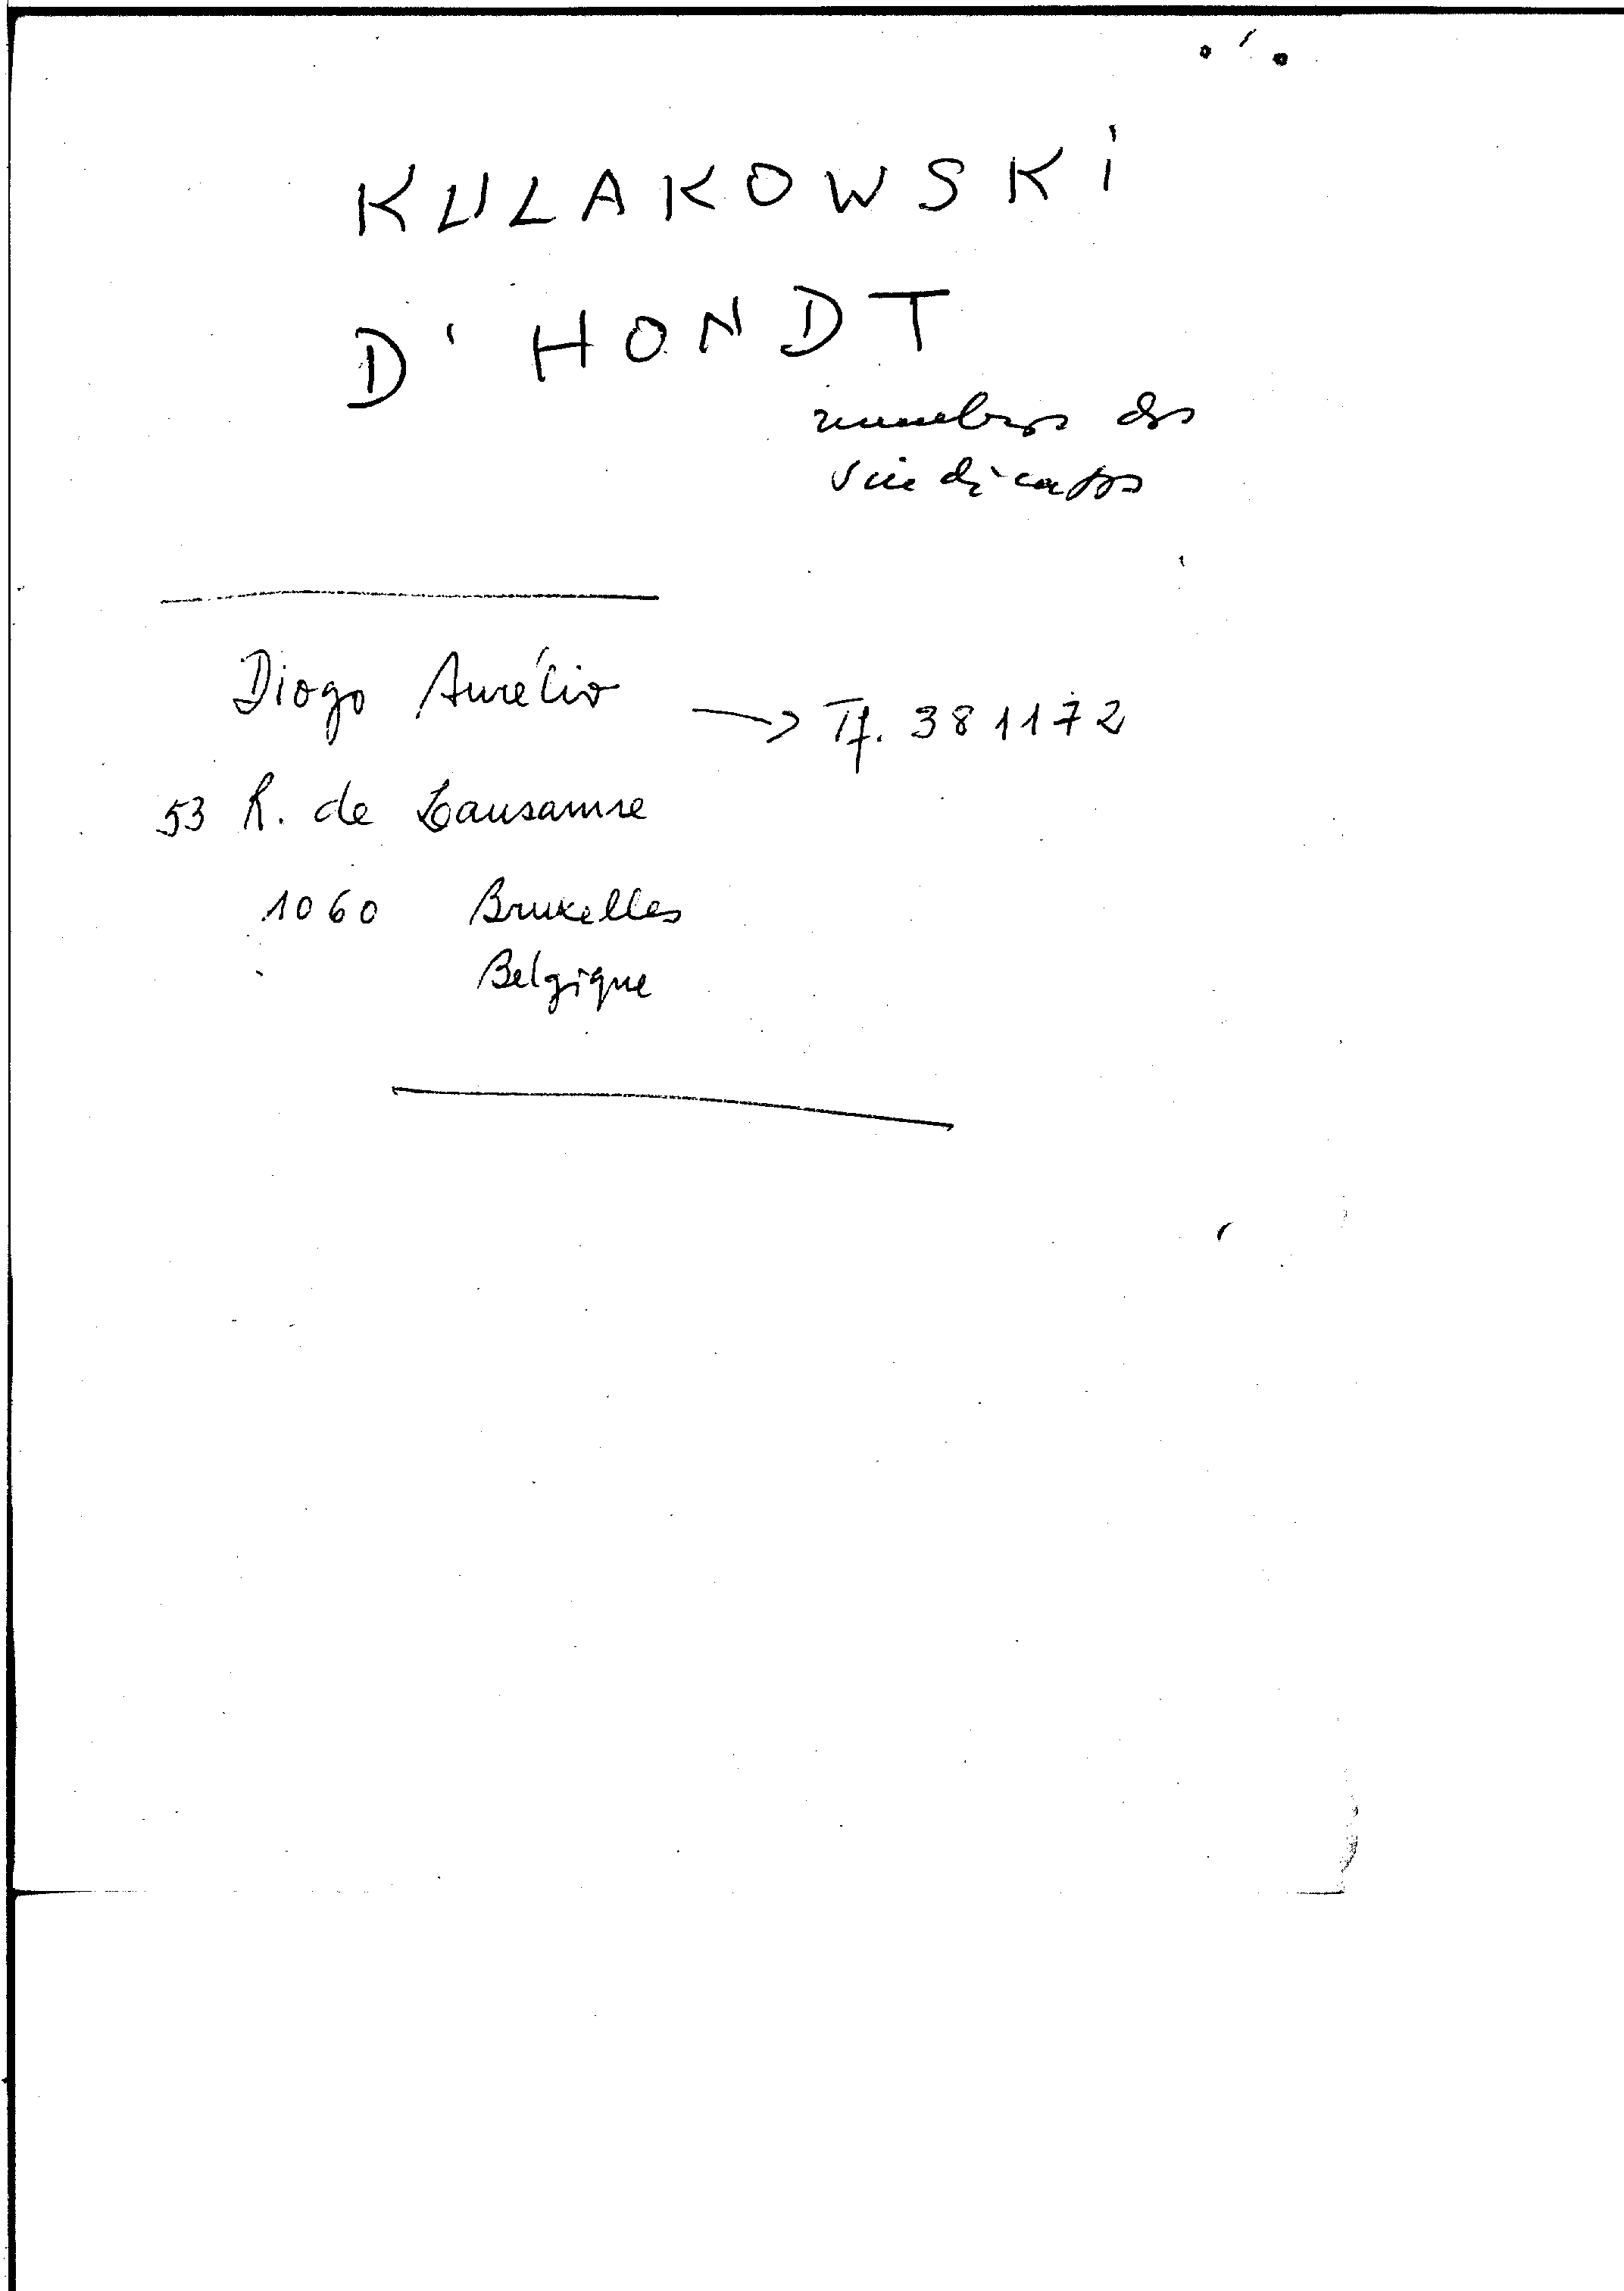 KULAKOWSKI
D'HONDT
membros dos
sindicatos
Diogo Aurélio → Tf. 381172
53 R. de Lausanne
1060 Bruxelles
Belgique